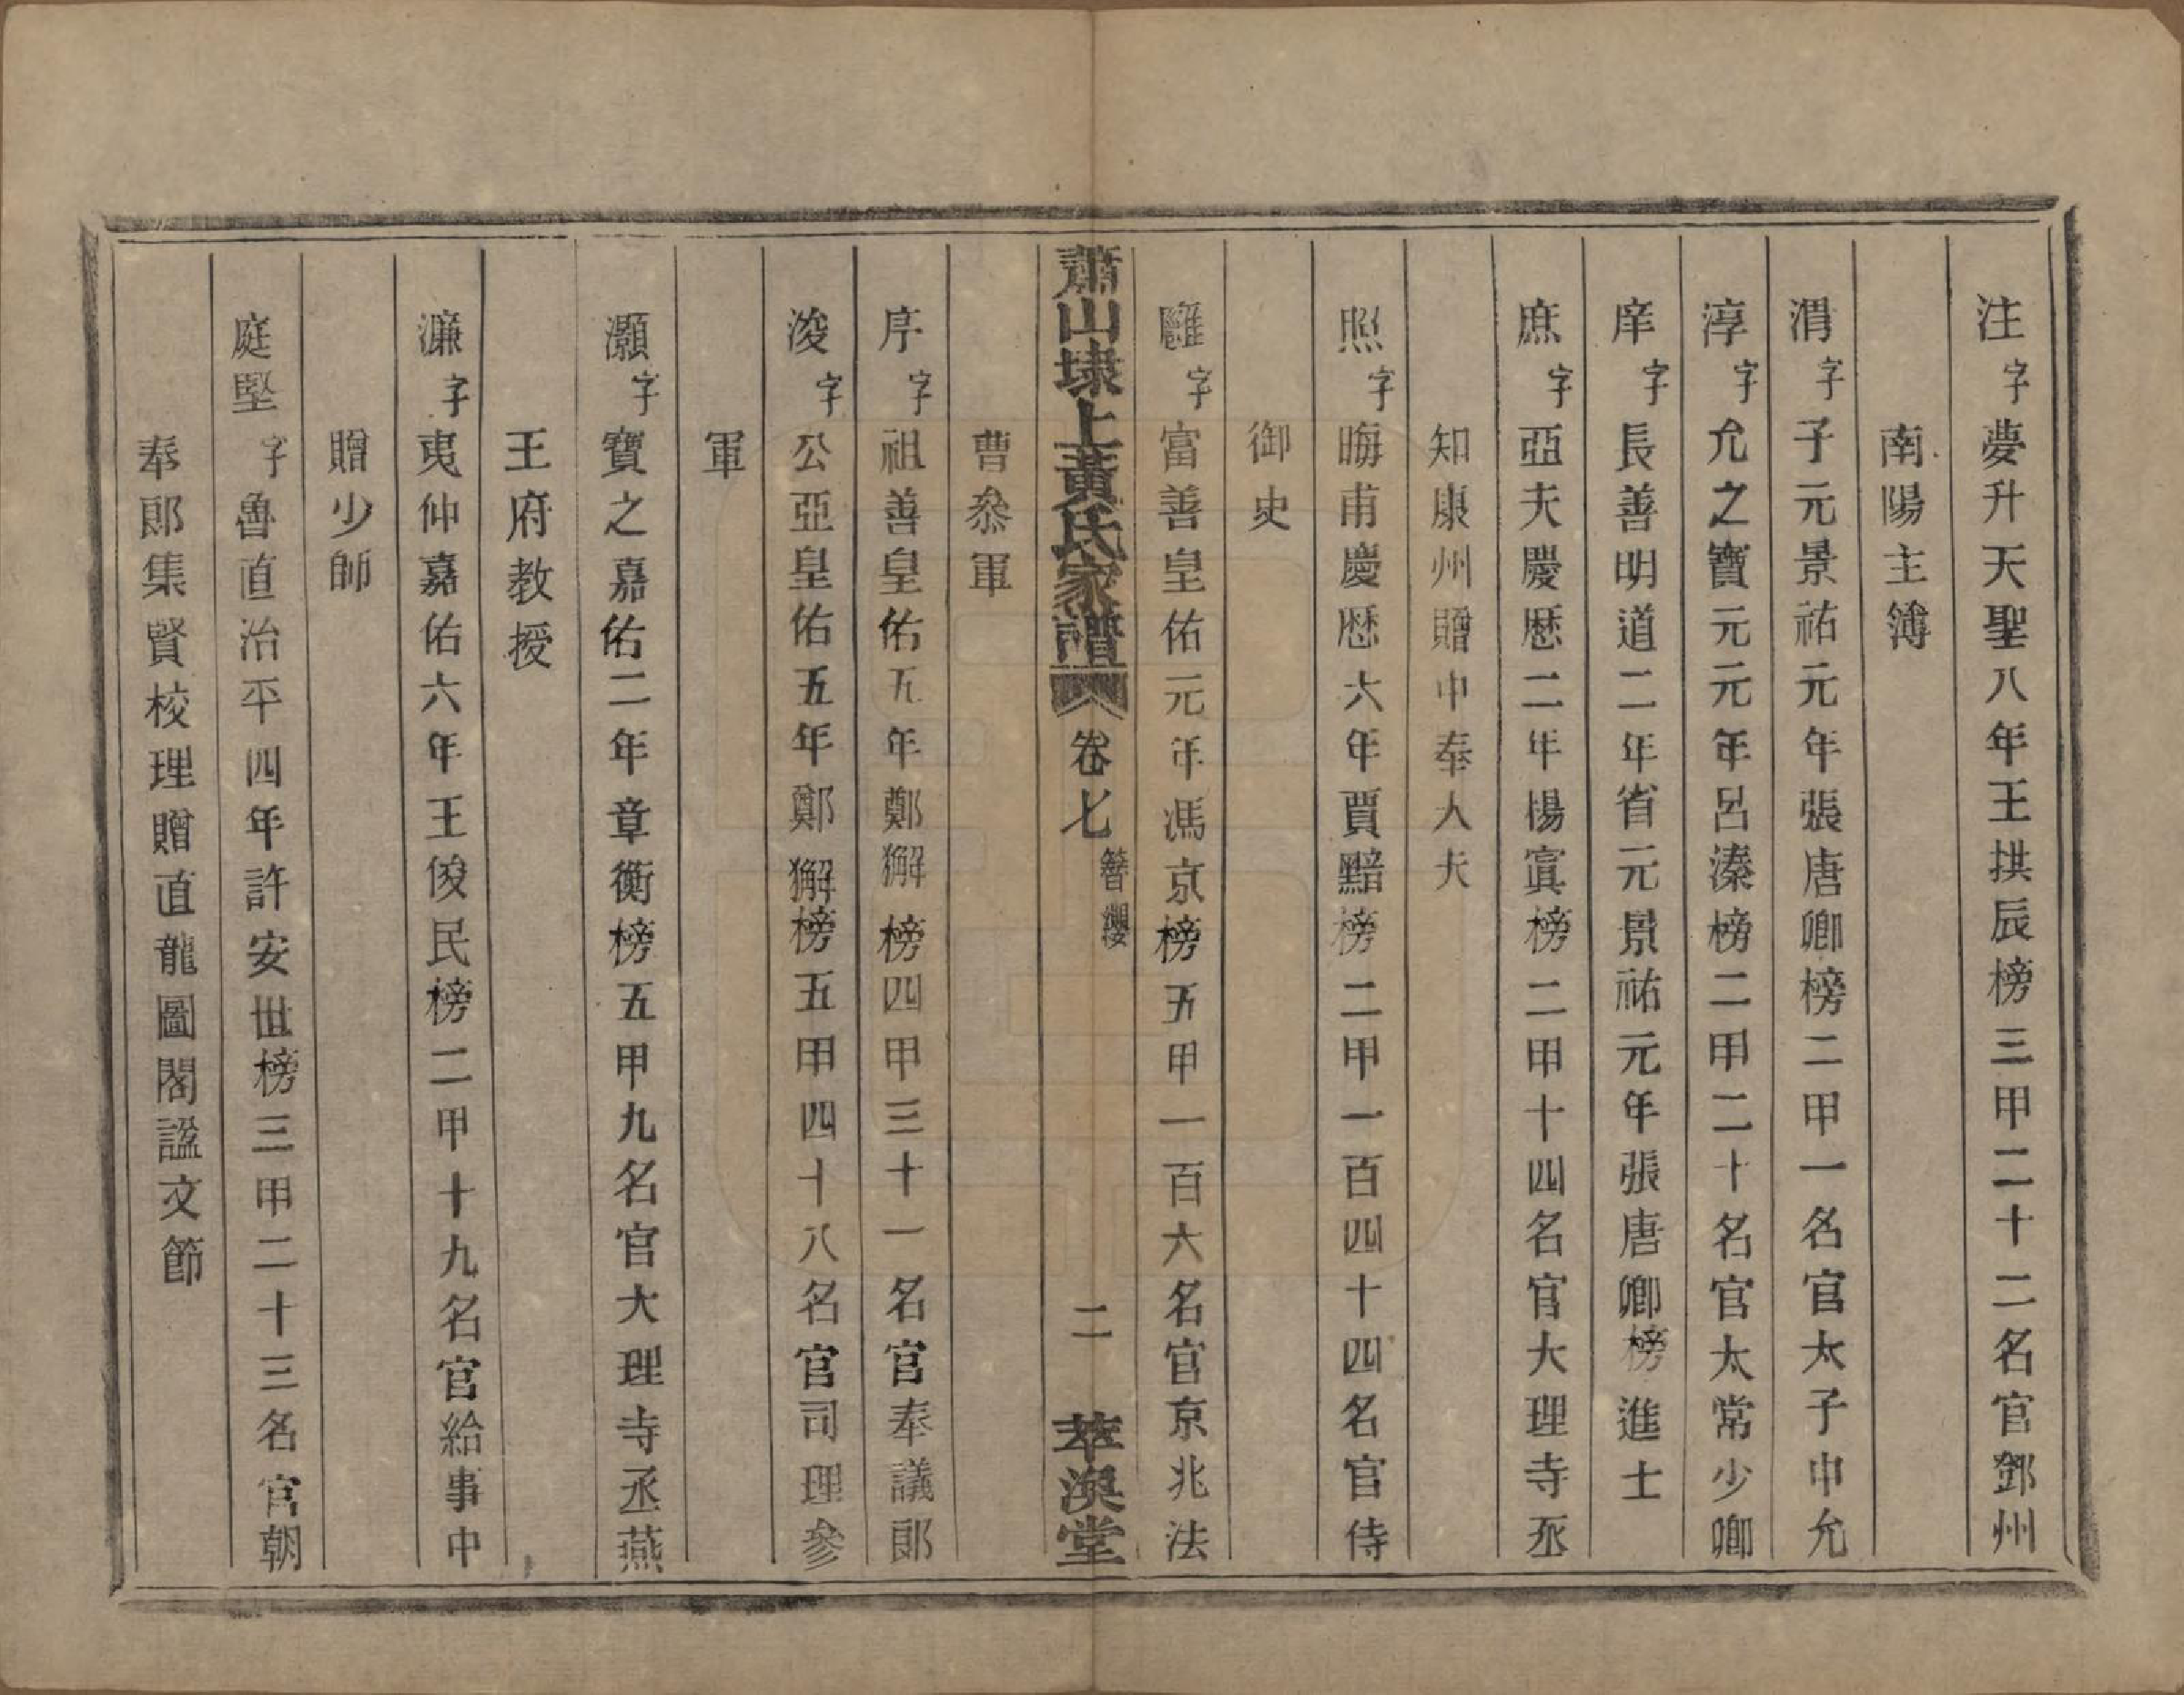 注字夢升天聖八年王拱辰榜三甲二十二名官鄧州
南陽主簿
渭字子元景祐元年張唐卿榜二甲一名官太子中允
淳字允之寶元元年呂溱榜二甲二十名官太常少卿
庠字長善明道二年省元景祐元年張唐卿榜進士
庶字亞夫慶歷二年楊寘榜二甲十四名官大理寺丞
知康州贈中奉大夫
照字晦甫慶歷六年賈黯榜二甲一百四十四名官侍
御史
雝字富善皇佑元年馮京榜五甲一百六名官京兆法
蕭山埭上黃氏家譜 卷七 簪纓 二 萃渙堂
曹叅軍
序字祖善皇佑五年鄭獬榜四甲三十一名官奉議郎
浚字公亞皇佑五年鄭獬榜五甲四十八名官司理參
軍
灝字寶之嘉佑二年章衡榜五甲九名官大理寺丞燕
王府教授
濂字夷仲嘉佑六年王俊民榜二甲十九名官給事中
贈少師
庭堅字魯直治平四年許安世榜三甲二十三名官朝
奉郎集賢校理贈直龍圖閣謚文節